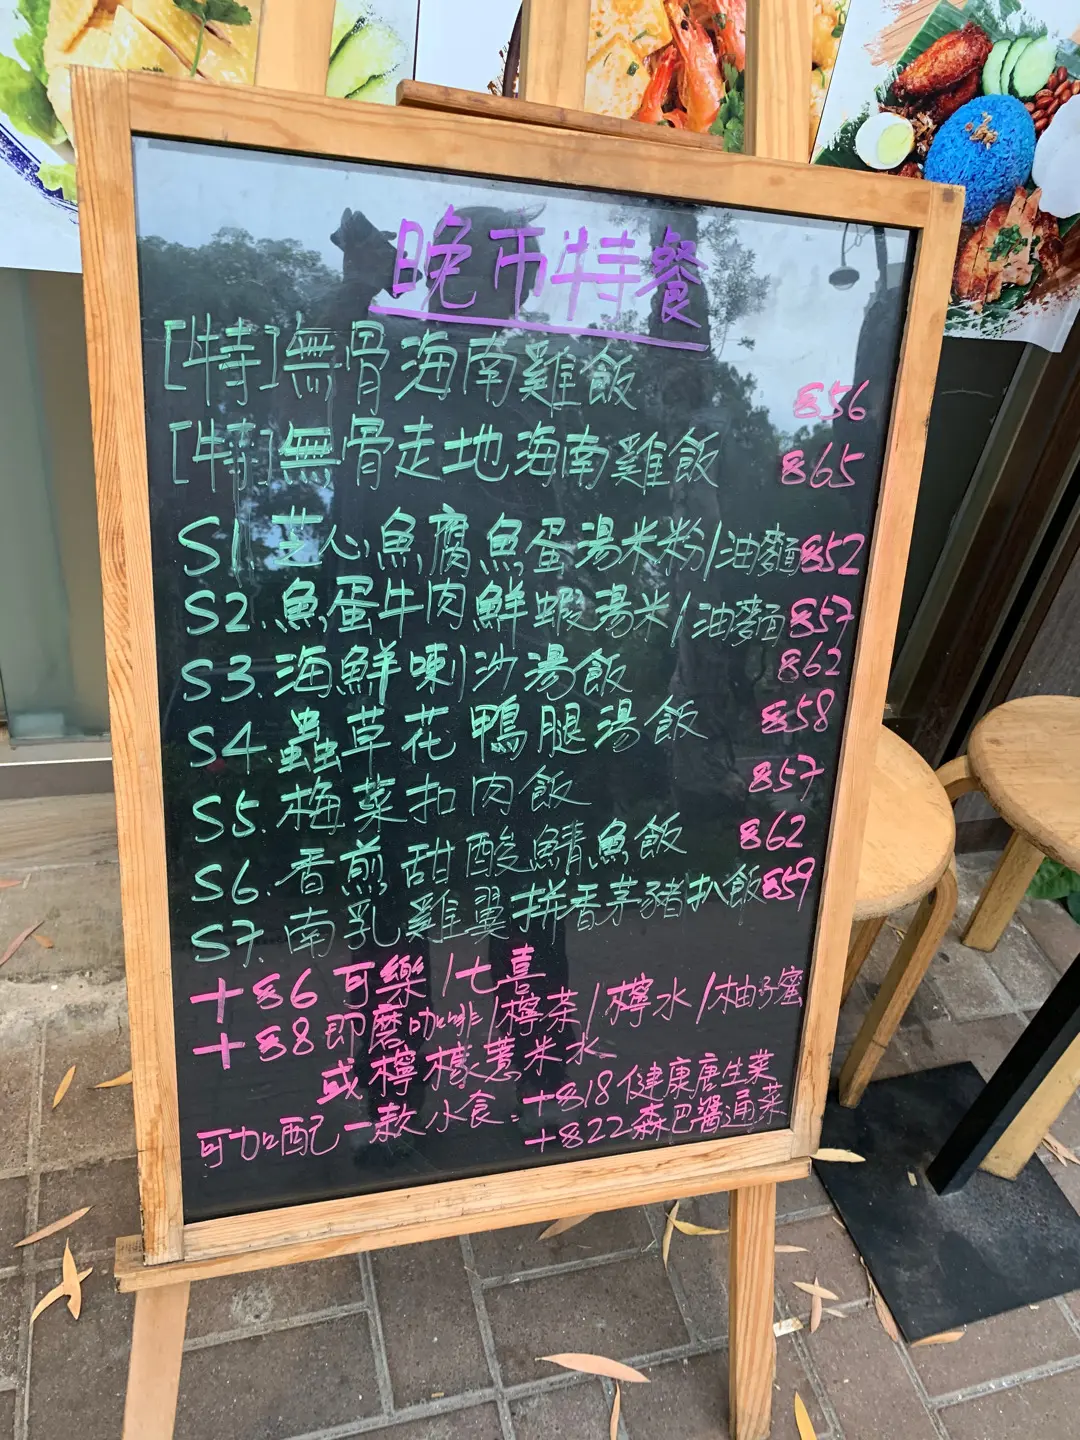 晚市特餐
[特]無骨海南雞飯 $56
[特]無骨走地海南雞飯 $65
S1.芝心魚腐魚蛋湯米粉/油麵 $52
S2.魚蛋牛肉鮮蝦湯米/油麵 $57
S3.海鮮喇沙湯飯 $62
S4.蟲草花鴨腿湯飯 $58
S5.梅菜扣肉飯 $57
S6.香煎甜酸鯖魚飯 $62
S7.南乳雞翼拼香茅豬扒飯 $59
+$6 可樂/七喜
+$8 即磨咖啡/檸茶/檸水/柚子蜜
或檸檬薏米水
可加配一款小食: +$18 健康唐生菜
+$22 森巴醬通菜